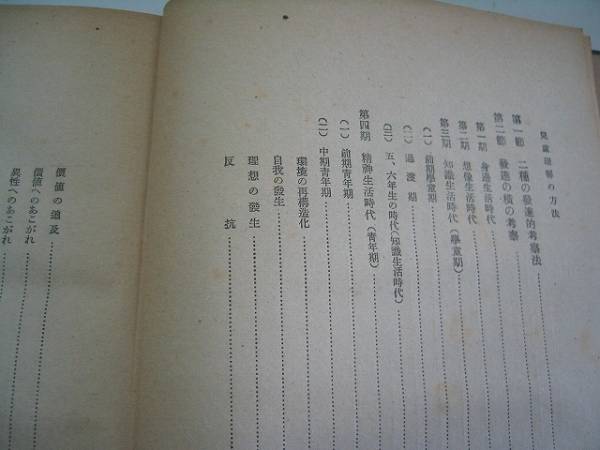 兒童理解の方法
第一節　二種の發達的考察法
第二節　發達の橫の考察
第一期　身邊生活時代
第二期　想像生活時代
第三期　知識生活時代（學童期）
（一）前期學童期
（二）過渡期
（三）五、六年生の時代（知識生活時代）
第四期　精神生活時代（青年期）
（一）前期青年期
（二）中期青年期
環境の再構造化
自我の發生
理想の發生
反抗
價値の追及
價値へのあこがれ
異性へのあこがれ